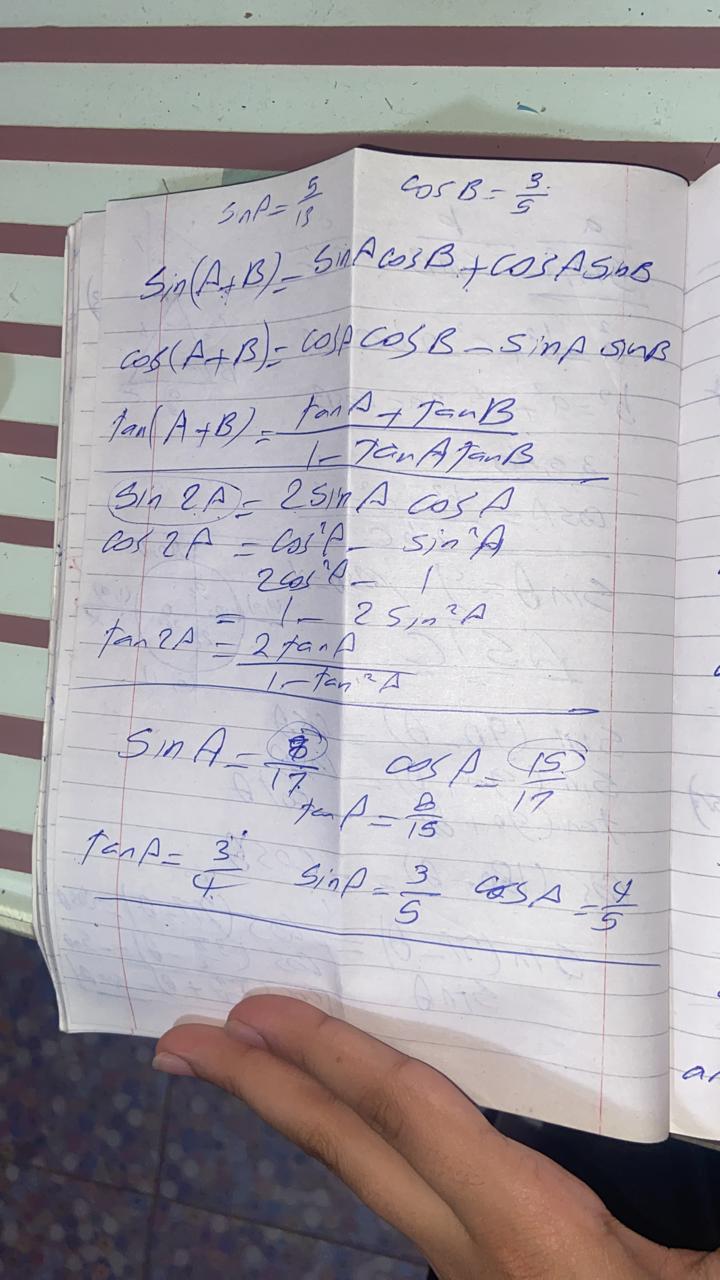 sinA = 5/13 cosB = 3/5
Sin(A+B) = sinA cosB + cosA sinB
cos(A+B) = cosA cosB - sinA sinB
tan(A+B) = tanA + tanB / 1 - TanA TanB
sin 2A = 2 sinA cosA
cos 2A = cos²A - sin²A
2cos²A - 1
= 1 - 2 sin²A
tan 2A = 2 tanA / 1 - tan²A
sinA = 8/17 cosA = 15/17
tanA = 8/15
tanA = 3/4 sinA = 3/5 cosA = 4/5